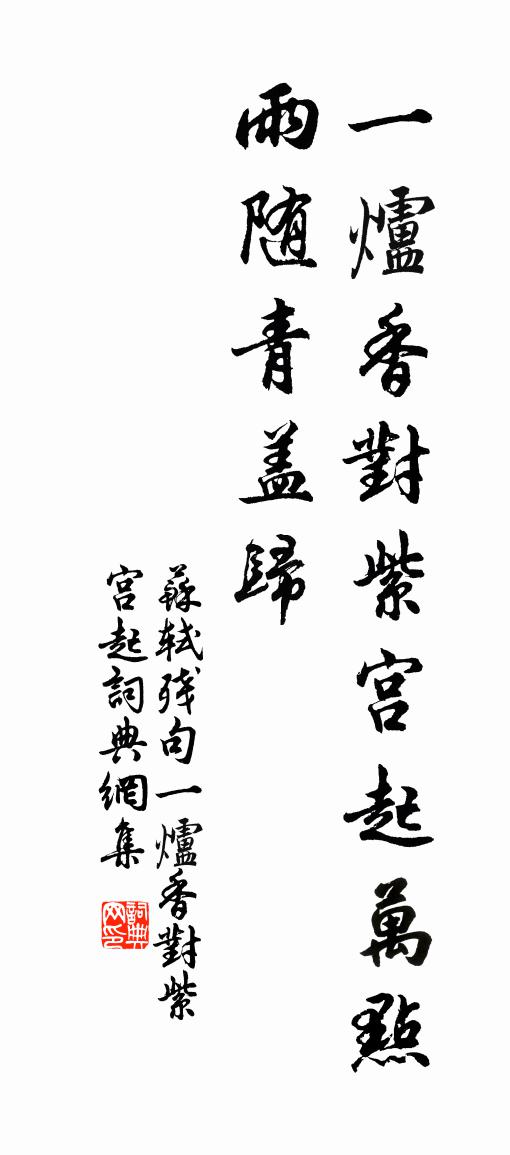 一爐香對紫宮起萬點
雨随青蓋歸
蘇軾残句一爐香對紫
宮起詞典網集
詞典网印